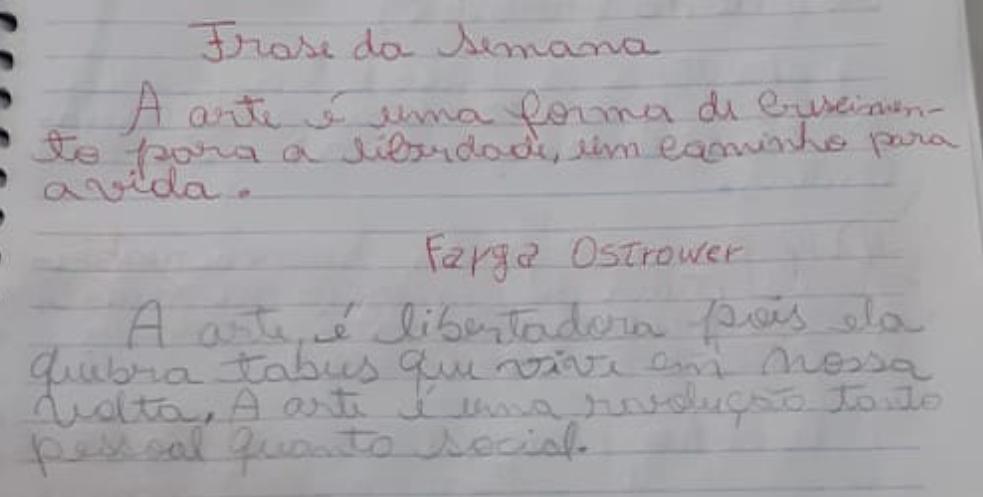 Frase da semana
A arte é uma forma de crescimen-
to para a liberdade, um caminho para
a vida.
Fayga Ostrower
A arte, é libertadora pois ela
quebra tabus que vive em nossa
volta, A arte é uma revolução tanto
pessoal quanto social.